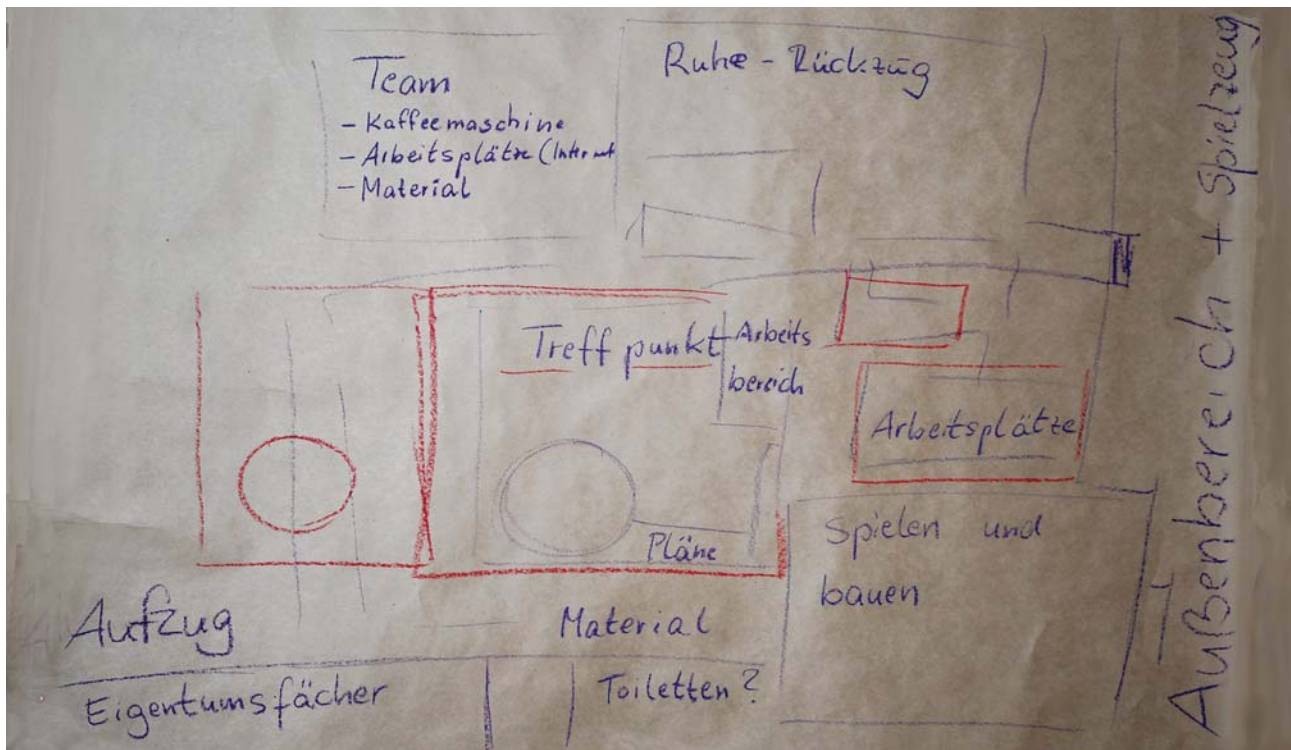 Team
- Kaffeemaschine
- Arbeitsplätze (Internet
- Material
Ruhe - Rückzug
Treffpunkt
Arbeits
bereich
Arbeitsplätze
Pläne
Spielen und
bauen
Aufzug
Material
Eigentumsfächer
Toiletten?
Außenbereich + Spielzeug